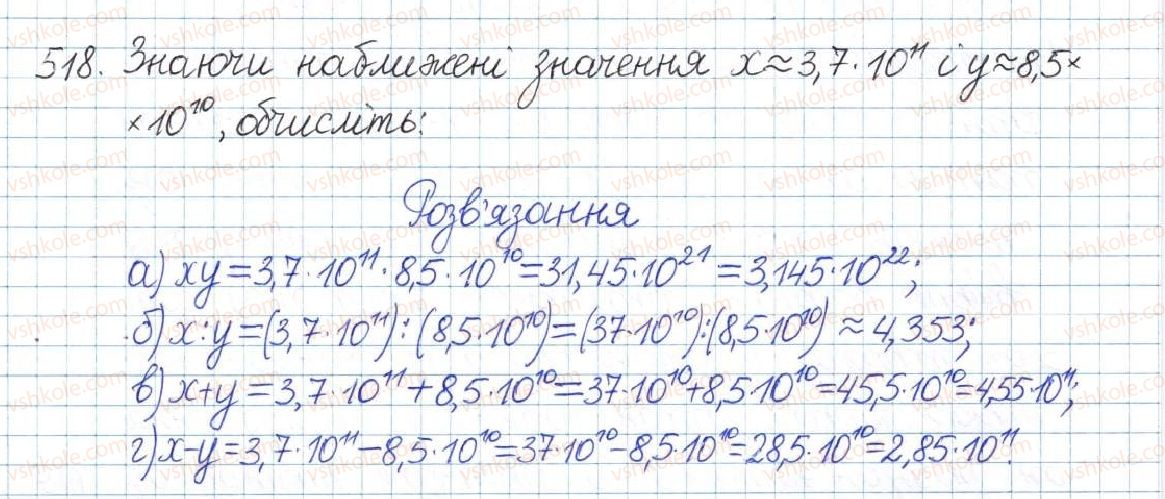 518. Знаючи наближені значення x≈3,7·10¹¹ і y≈8,5×
×10¹⁰, обчисліть:
Розв'язання
а) xy=3,7·10¹¹·8,5·10¹⁰=31,45·10²¹=3,145·10²²;
б) x:y=(3,7·10¹¹):(8,5·10¹⁰)=(37·10¹⁰):(8,5·10¹⁰)≈4,353;
в) x+y=3,7·10¹¹+8,5·10¹⁰=37·10¹⁰+8,5·10¹⁰=45,5·10¹⁰=4,55·10¹¹;
г) x-y=3,7·10¹¹-8,5·10¹⁰=37·10¹⁰-8,5·10¹⁰=28,5·10¹⁰=2,85·10¹¹.
vshkole.com